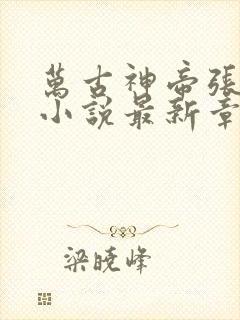 萬古神帝張
小說最新章
梁曉峰